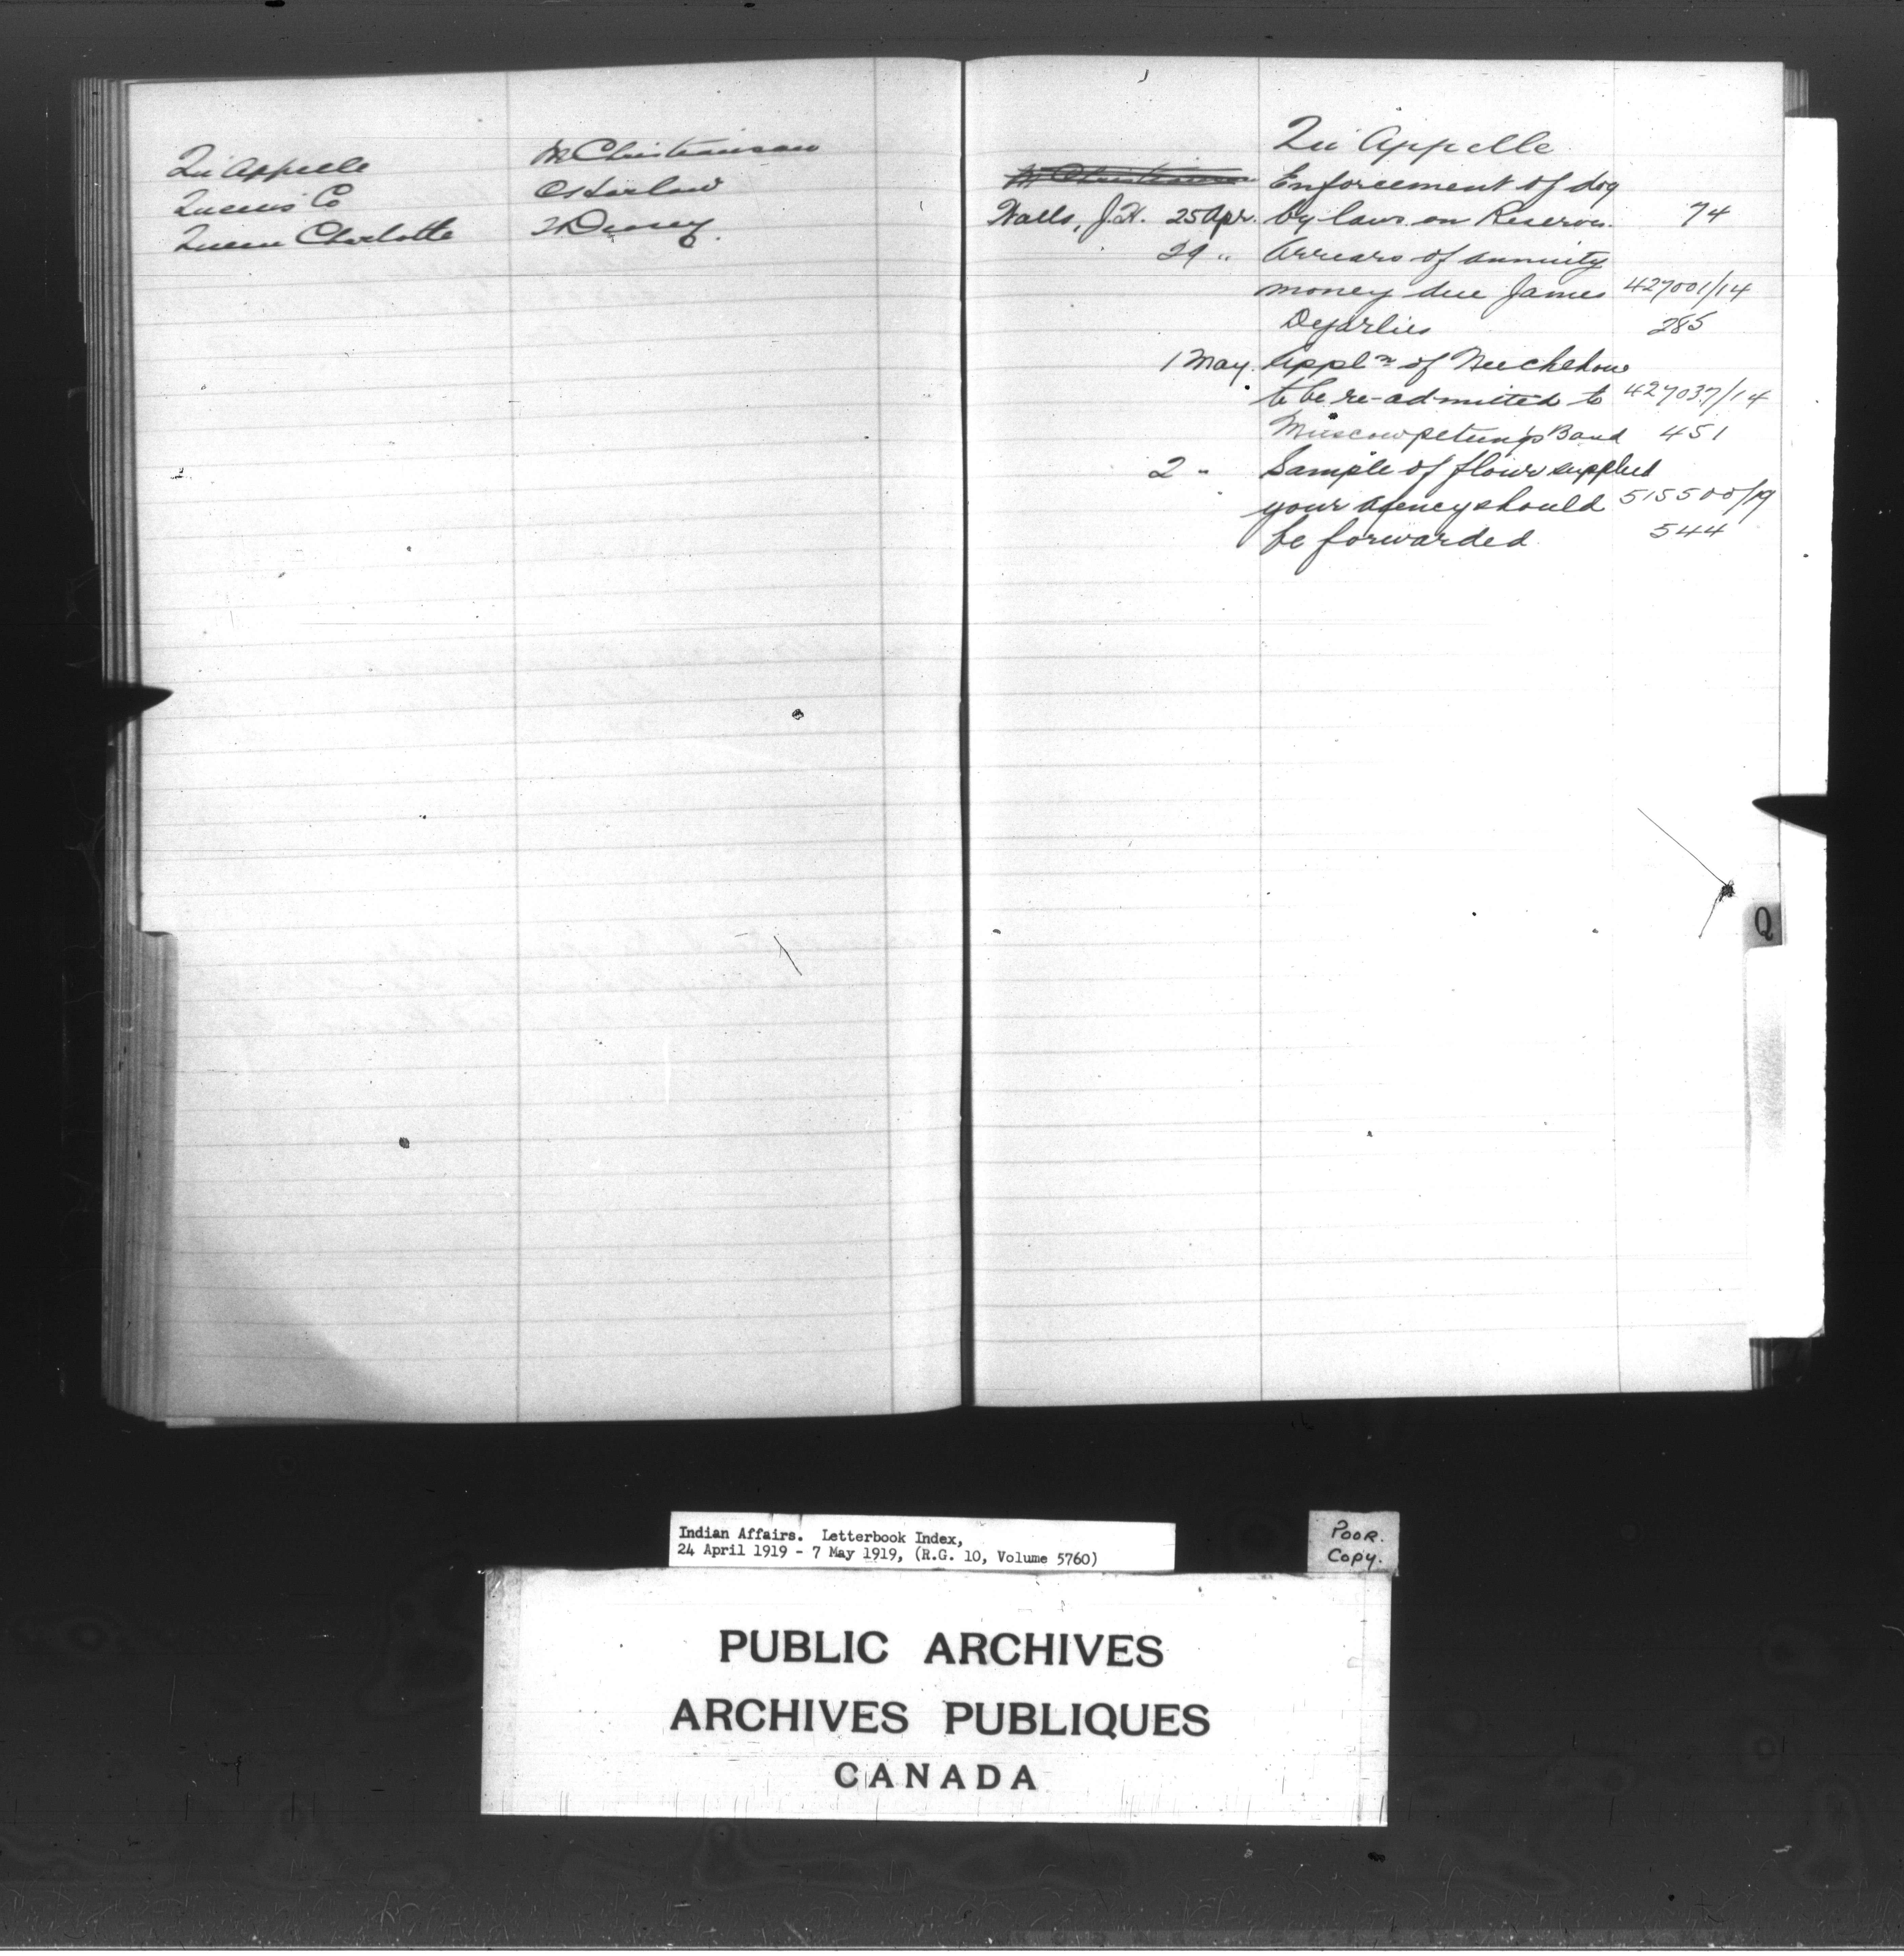 Qu'Appelle M Christianson
Queens Co C Harlow
Queen Charlotte
Qu'Appelle
M Christianson Enforcement of dog
Walls, J.H. 25 Apr. by laws on Reserves. 74
29 " Arrears of annuity
money due James 427001/14
Dejarlies 285
1 May. Appln of
to be re-admitted to 427037/14
Muscowpetung's Band 451
2 " Sample of flour supplied
your agency should 515500/19
be forwarded 544
Q
Indian Affairs. Letterbook Index,
24 April 1919 - 7 May 1919, (R.G. 10, Volume 5760)
POOR.
COPY.
PUBLIC ARCHIVES
ARCHIVES PUBLIQUES
CANADA